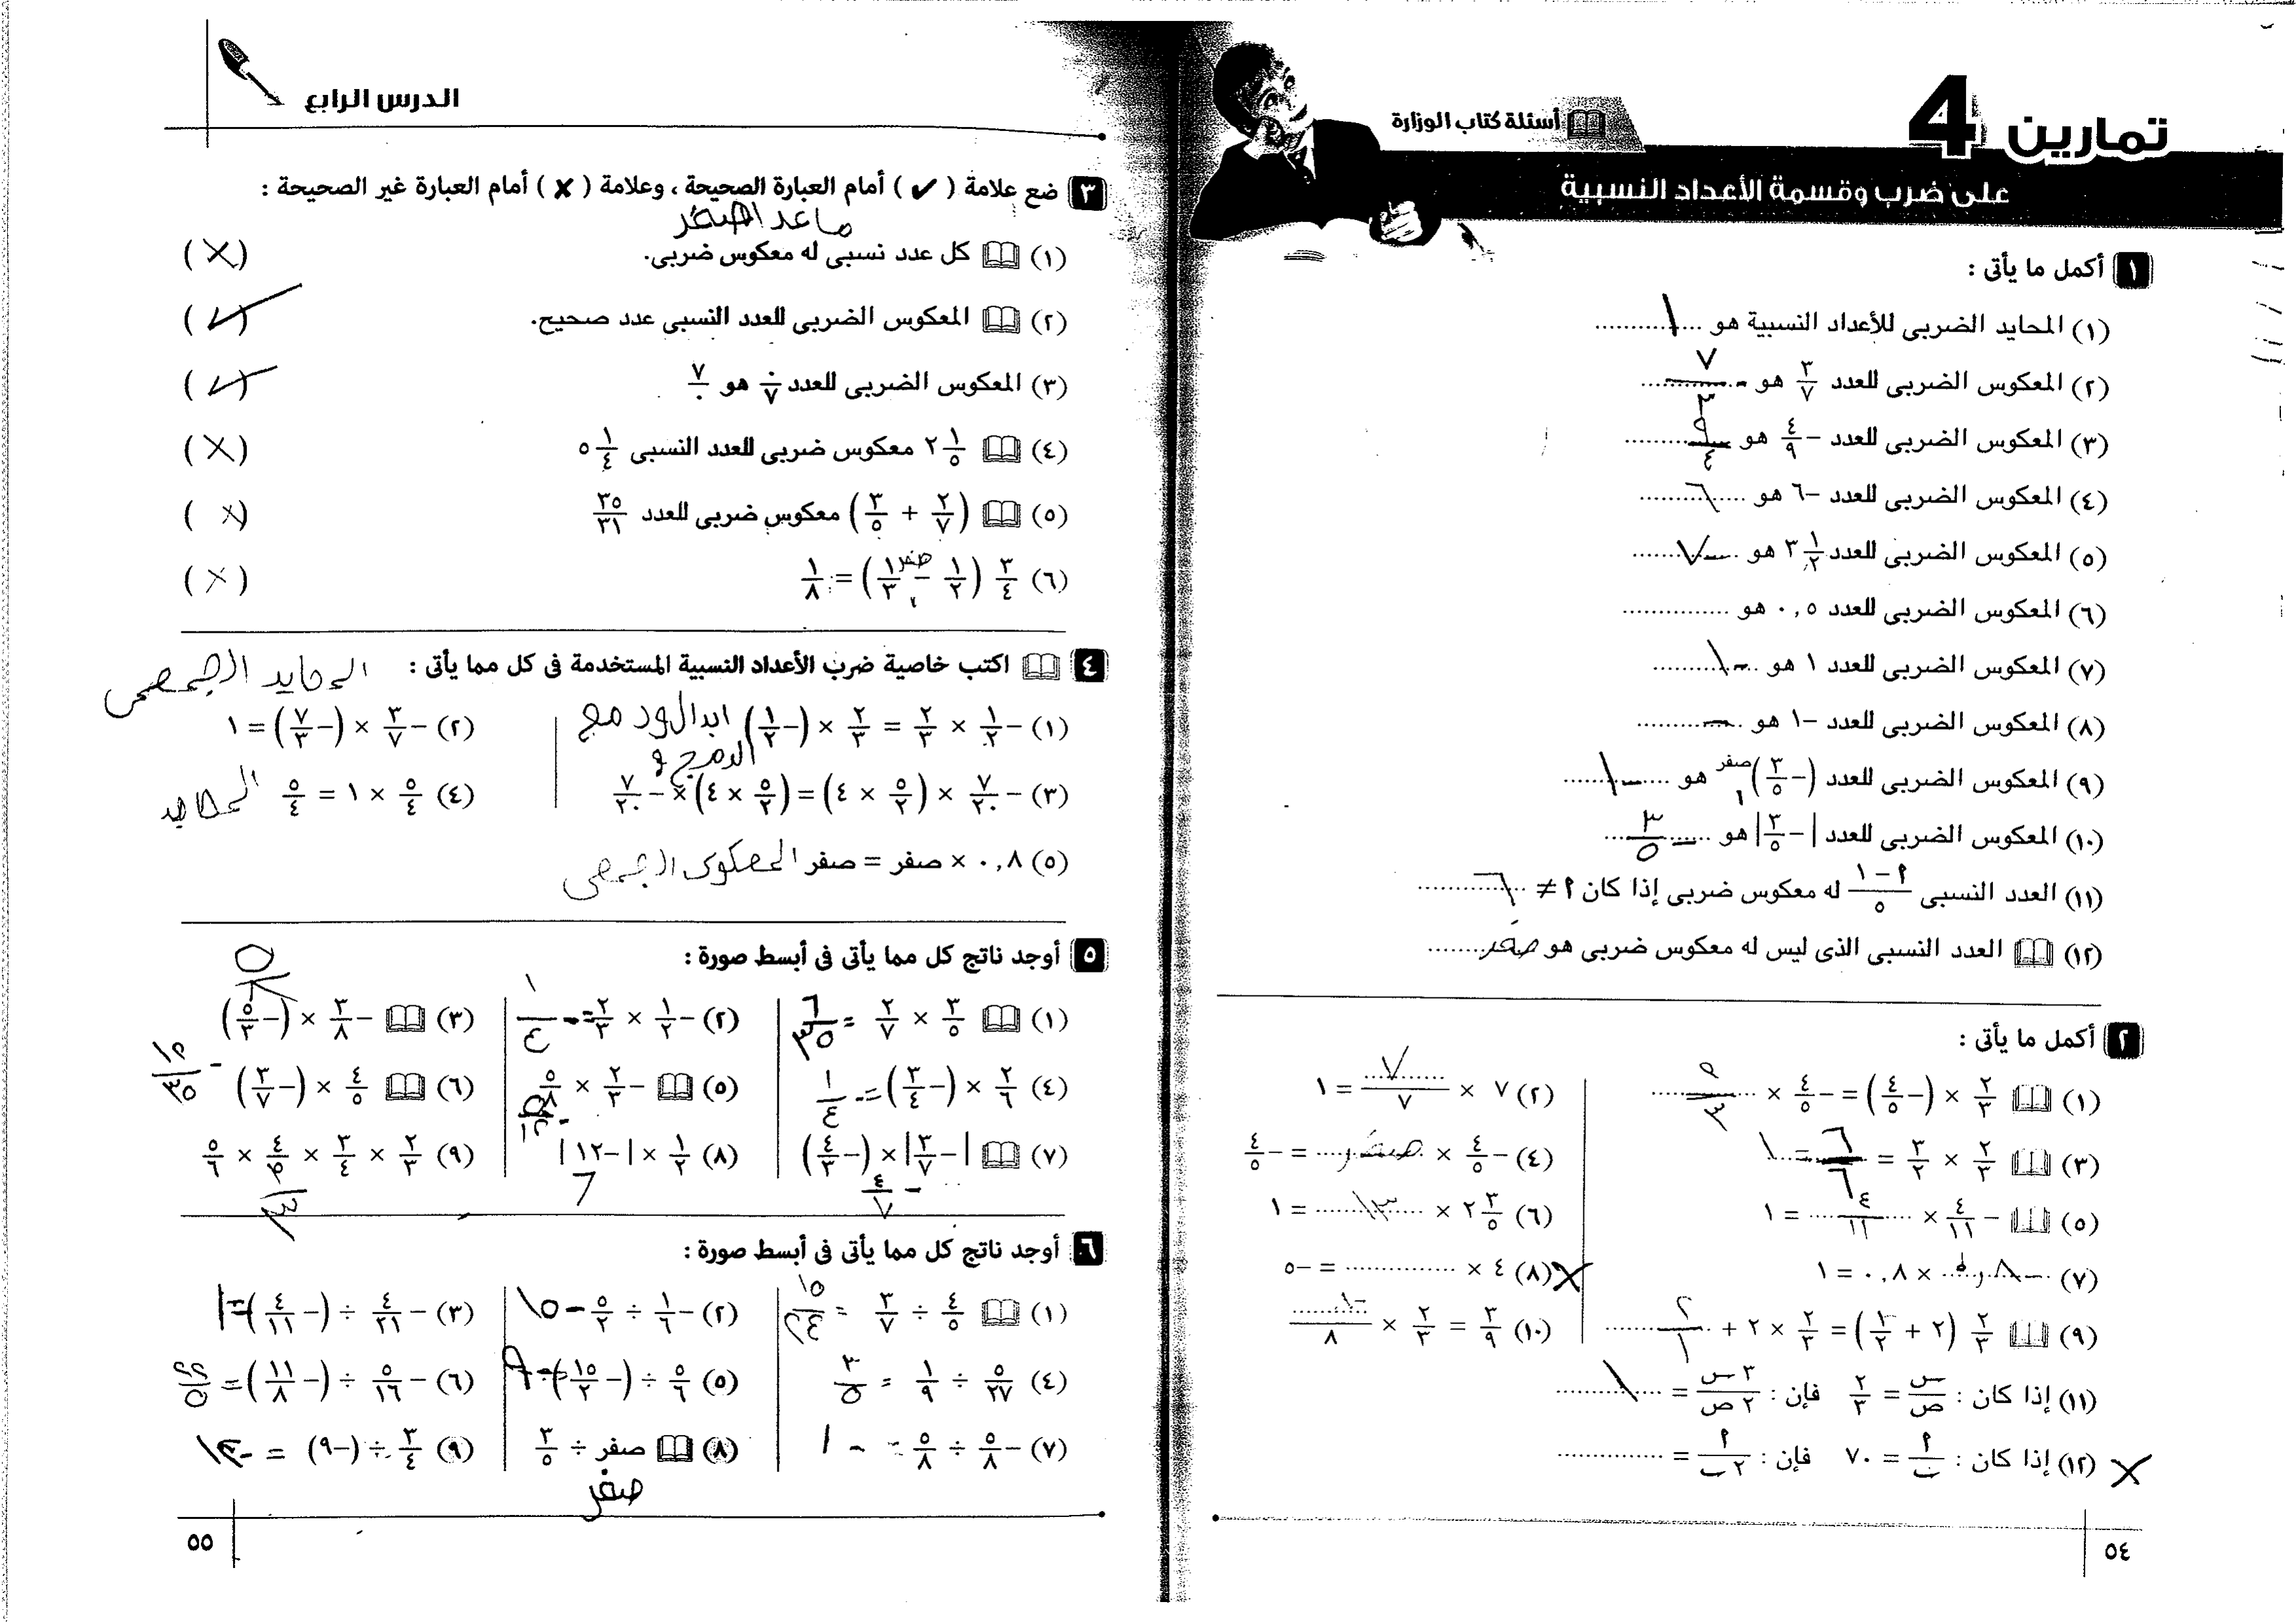 تمارين 4
أسئلة كتاب الوزارة
على ضرب وقسمة الأعداد النسبية
١ أكمل ما يأتى :
(١) المحايد الضربى للأعداد النسبية هو ١
(٢) المعكوس الضربى للعدد ٣/٧ هو ٧/٣
(٣) المعكوس الضربى للعدد −٤/٩ هو ٩/٤
(٤) المعكوس الضربى للعدد −٦ هو ٦
(٥) المعكوس الضربى للعدد ٣ ١/٢ هو −٧
(٦) المعكوس الضربى للعدد ٠,٥ هو ...............
(٧) المعكوس الضربى للعدد ١ هو −١
(٨) المعكوس الضربى للعدد −١ هو ...............
(٩) المعكوس الضربى للعدد (−٣/٥)صفر هو −١
(١٠) المعكوس الضربى للعدد |−٣/٥| هو −٣/٥
(١١) العدد النسبى (٩−١)/٥ له معكوس ضربى إذا كان ٩ ≠ ٦
(١٢) العدد النسبى الذى ليس له معكوس ضربى هو صفر
٢ أكمل ما يأتى :
(١) ٢/٣ × (−٤/٥) = −٤/٥ × ٩/٣
(٢) ٧ × ٧/٧ = ١
(٣) ٢/٣ × ٣/٢ = ٦/٦ = ١
(٤) −٤/٥ × صفر = −٤/٥
(٥) −٤/١١ × ٤/١١ = ١
(٦) ٢ ٣/٥ × ١٣ = ١
(٧) × ٠,٨ = ١
(٨) ٤ × ............... = −٥
(٩) ٢/٣ (٢ + ٣/٢) = ٢/٣ × ٢ + ٢/١
(١٠) ٣/٩ = ٢/٣ × ١٠/٨
(١١) إذا كان : س/ص = ٢/٣ فإن : ٣ س/٢ ص = ١
(١٢) إذا كان : ٩/ب = ٧٠ فإن : ٩/٢ ب = ...............
٥٤
الدرس الرابع
٣ ضع علامة ( ✓ ) أمام العبارة الصحيحة ، وعلامة ( ✗ ) أمام العبارة غير الصحيحة :
ماعدا الصفر
(١) كل عدد نسبى له معكوس ضربى. (✗)
(٢) المعكوس الضربى للعدد النسبى عدد صحيح. (✓)
(٣) المعكوس الضربى للعدد ٠/٧ هو ٧/٠ (✓)
(٤) ٢ ١/٥ معكوس ضربى للعدد النسبى ٥ ١/٤ (✗)
(٥) (٢/٧ + ٣/٥) معكوس ضربى للعدد ٣٥/٣١ (✗)
(٦) ٣/٤ (١/٢ − ١/٣) = ١/٨ (✗)
صفر
٤ اكتب خاصية ضرب الأعداد النسبية المستخدمة فى كل مما يأتى :
(١) −١/٢ × ٢/٣ = ٢/٣ × (−١/٢)
(٢) −٣/٧ × (−٧/٣) = ١
(٣) −٧/٢٠ × (٥/٢ × ٤) = (٥/٢ × ٤) × −٧/٢٠ الدمج
(٤) ٥/٤ × ١ = ٥/٤ المحايد
(٥) ٠,٨ × صفر = صفر المعكوس الجمعى
٥ أوجد ناتج كل مما يأتى فى أبسط صورة :
(١) ٣/٥ × ٢/٧ = ٦/٣٥
(٢) −١/٢ × ٢/٣ = −١/٤
(٣) −٣/٨ × (−٥/٣) ٥/٨
(٤) ٢/٦ × (−٣/٤) = −١/٤
(٥) −٢/٣ × ٥/٨ −٥/١٢
(٦) ٤/٥ × (−٣/٧) −١٢/٣٥
(٧) |−٣/٧| × (−٤/٣) −٤/٧
(٨) ١/٢ × |−١٢| ٦
(٩) ٢/٣ × ٣/٤ × ٤/٥ × ٥/٦
٦ أوجد ناتج كل مما يأتى فى أبسط صورة :
(١) ٤/٥ ÷ ٣/٧ = ١٥/٢٤
(٢) −١/٦ ÷ ٥/٢ −١٥
(٣) −٤/٢١ ÷ (−٤/١١) = ١
(٤) ٥/٢٧ ÷ ١/٩ = ٣/٥
(٥) ٥/٦ ÷ (−١٥/٢) = −٩
(٦) −٥/١٦ ÷ (−١١/٨) = ٢٢/٥
(٧) −٥/٨ ÷ ٥/٨ = −١
(٨) صفر ÷ ٣/٥ صفر
(٩) ٣/٤ ÷ (−٩) = −١٢
٥٥